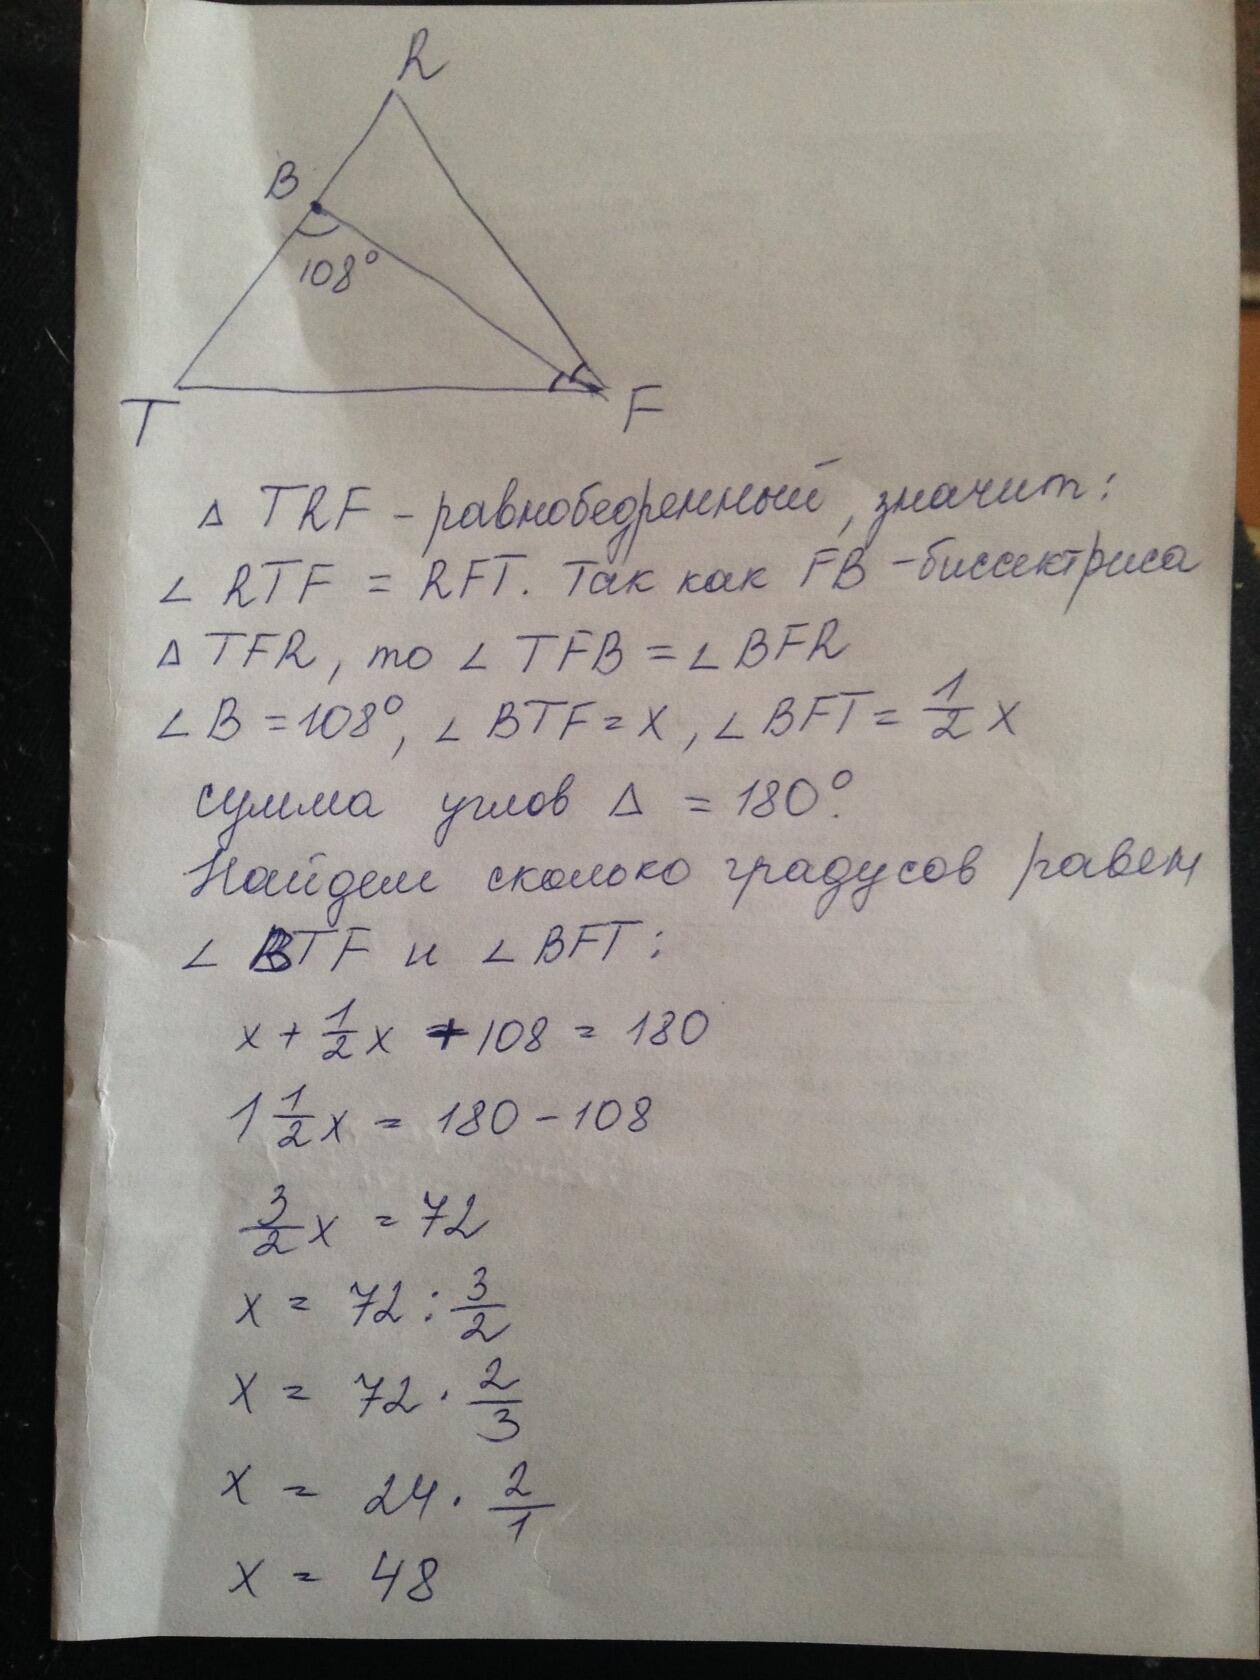 R
B
108°
T F
Δ TRF – равнобедренный, значит:
∠ RTF = RFT. Так как FB – биссектриса
Δ TFR, то ∠ TFB = ∠ BFR
∠ B = 108°, ∠ BTF = x, ∠ BFT = 1/2 x
сумма углов Δ = 180°.
Найдем сколько градусов равен
∠ BTF и ∠ BFT:
x + 1/2 x + 108 = 180
1 1/2 x = 180 – 108
3/2 x = 72
x = 72 : 3/2
x = 72 · 2/3
x = 24 · 2/1
x = 48